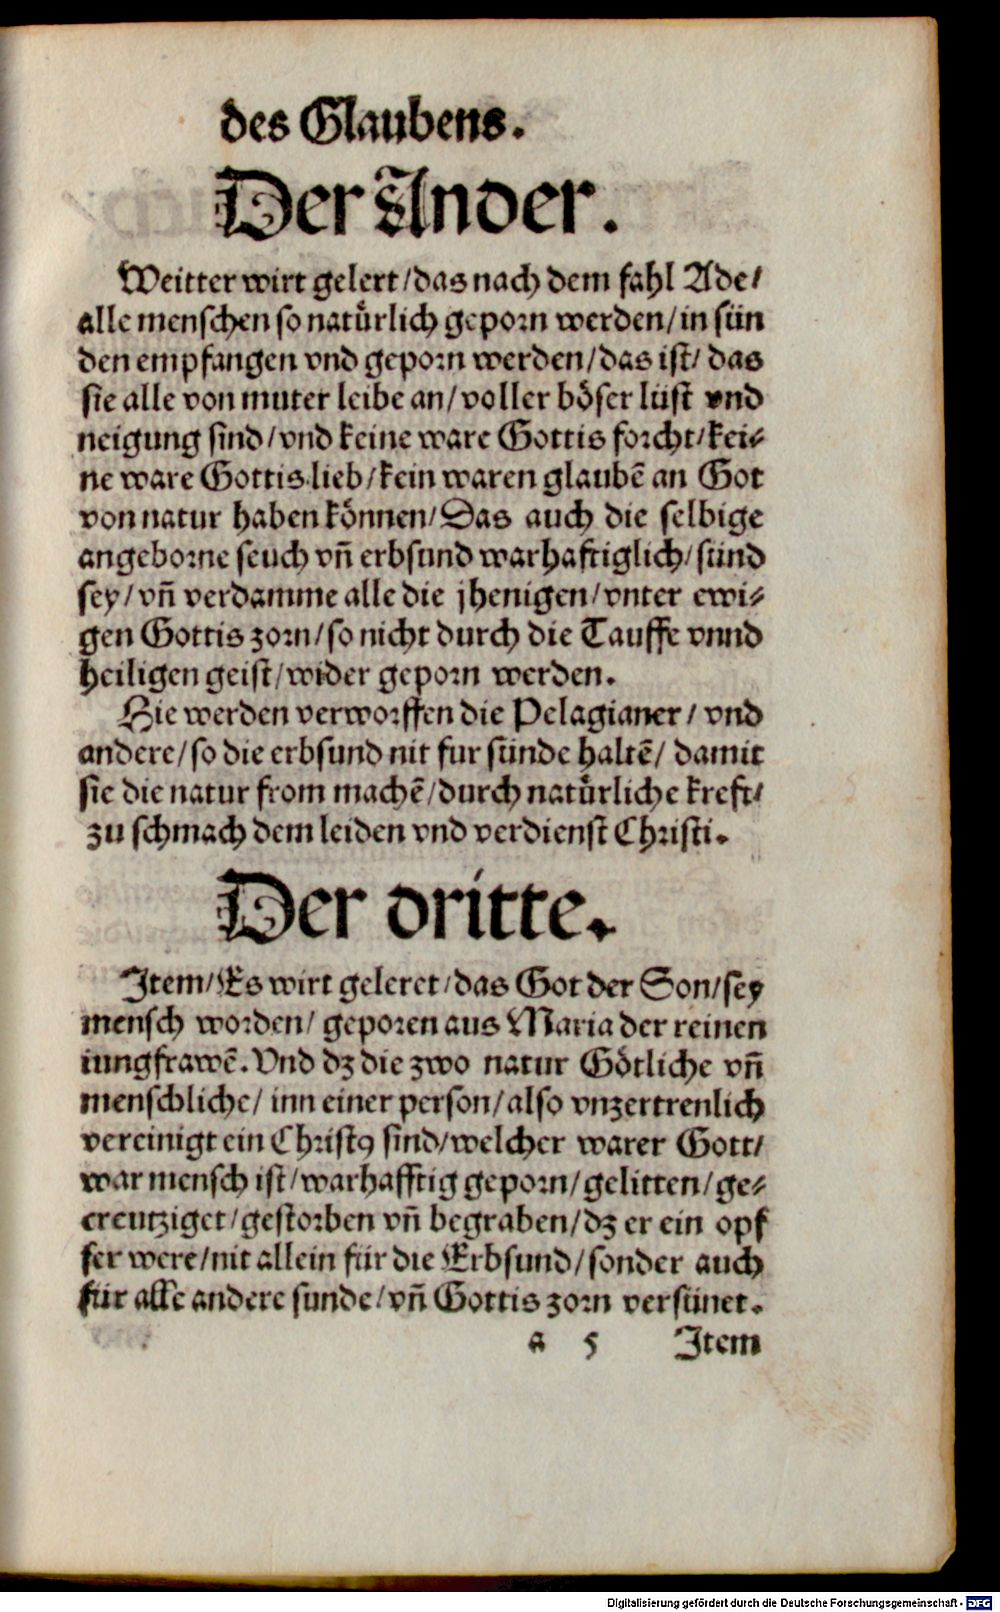 des Glaubens.
Der Ander.
Weitter wirt gelert/das nach dem fahl Ade/
alle menschen so natürlich geporn werden/in sün
den empfangen vnd geporn werden/das ist/das
sie alle von muter leibe an/voller böser lüst vnd
neigung sind/vnd keine ware Gottis forcht/kei⸗
ne ware Gottis lieb/kein waren glaubē an Got
von natur haben können/Das auch die selbige
angeborne seuch vñ erbsund warhafftiglich/sünd
sey/vñ verdamme alle die jhenigen/vnter ewi⸗
gen Gottis zorn/so nicht durch die Tauffe vnnd
heiligen geist/wider geporn werden.
Hie werden verworffen die Pelagianer/vnd
andere/so die erbsund nit fur sünde haltē/damit
sie die natur from machē/durch natürliche kreft/
zu schmach dem leiden vnd verdienst Christi.
Der dritte.
Item/Es wirt geleret/das Got der Son/sey
mensch worden/geporen aus Maria der reinen
iungfrawē. Vnd dz die zwo natur Götliche vñ
menschliche/inn einer person/also vnzertrenlich
vereinigt ein Christꝰ sind/welcher warer Gott/
war mensch ist/warhafftig geporn/gelitten/ge⸗
creutziget/gestorben vñ begraben/dz er ein opf
fer were/nit allein für die Erbsund/sonder auch
für alle andere sunde/vñ Gottis zorn versünet.
a 5 Item
Digitalisierung gefördert durch die Deutsche Forschungsgemeinschaft - DFG